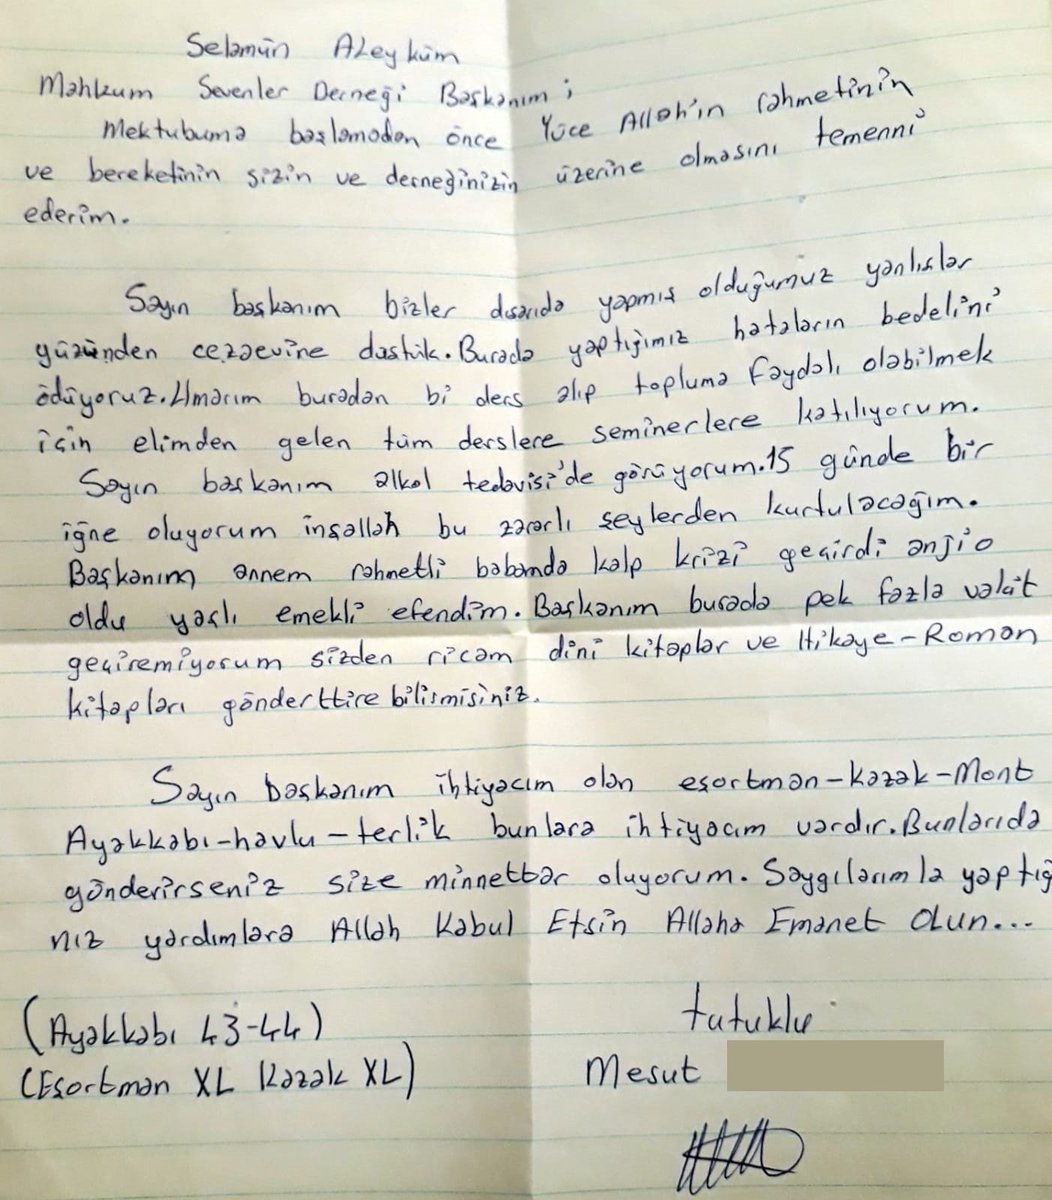 Selamün Aleyküm
Mahkum Sevenler Derneği Başkanım;
Mektubuma başlamadan önce Yüce Allah'ın rahmetinin
ve bereketinin sizin ve derneğinizin üzerine olmasını temenni
ederim.
Sayın başkanım bizler dışarıda yapmış olduğumuz yanlışlar
yüzünden cezaevine düştük. Burada yaptığımız hataların bedelini
ödüyoruz. Umarım buradan bi ders alıp topluma faydalı olabilmek
için elimden gelen tüm derslere seminerlere katılıyorum.
Sayın başkanım alkol tedavisi'de görüyorum. 15 günde bir
iğne oluyorum inşallah bu zararlı şeylerden kurtulacağım.
Başkanım annem rahmetli babamda kalp krizi geçirdi anjio
oldu yaşlı emekli efendim. Başkanım burada pek fazla vakit
geçiremiyorum sizden ricam dini kitaplar ve Hikaye-Roman
kitapları gönderttire bilirmisiniz.
Sayın başkanım ihtiyacım olan eşortman-kazak-Mont
Ayakkabı-havlu-terlik bunlara ihtiyacım vardır. Bunlarıda
gönderirseniz size minnettar oluyorum. Saygılarımla yaptığ
nız yardımlara Allah Kabul Etsin Allaha Emanet Olun...
(Ayakkabı 43-44)
(Eşortman XL Kazak XL)
tutuklu
Mesut